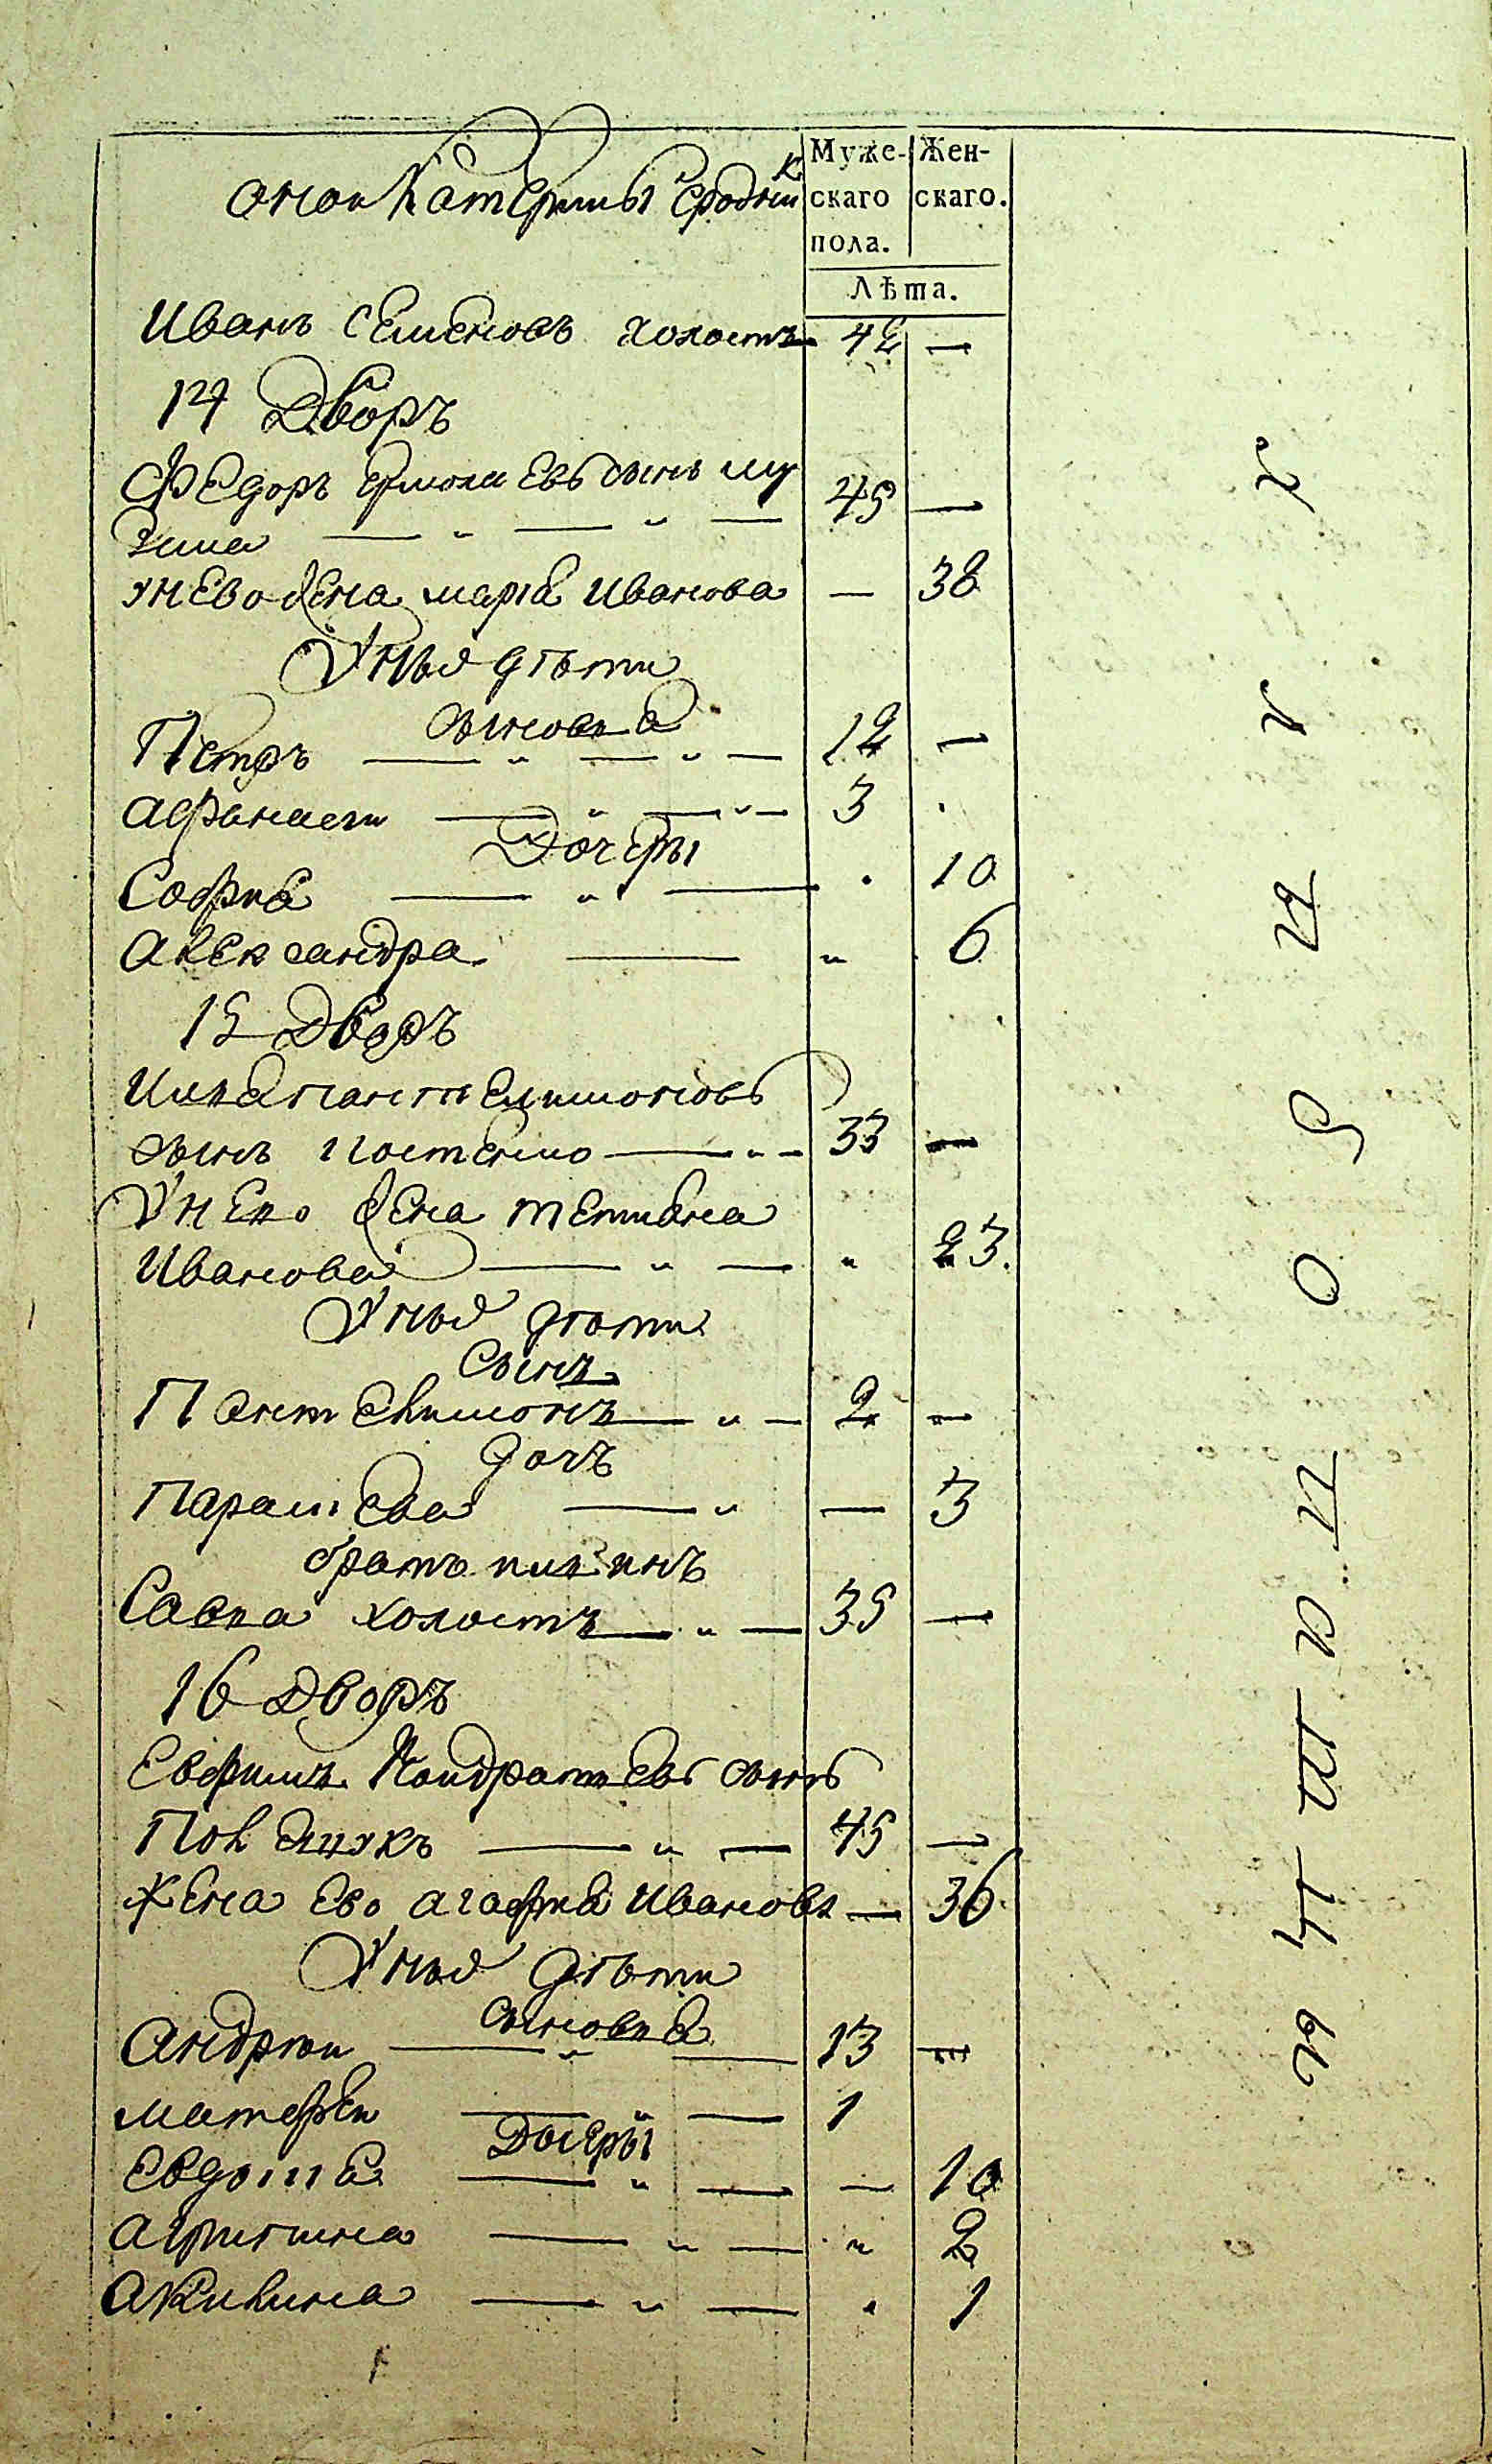 оной Катерины сродник
Муже- Жен-
скаго скаго.
пола.
Лѣта.
Иванъ Семеновъ холостъ 42 —
14 Дворъ
Федоръ Ермолаевъ сынъ му
зика — " — " — 45 —
унево жена мариа Иванова — 38
Унихъ дѣти
сыновиа
Петръ — " — " — 12 —
афанаси — " — " — 3 .
Дочеры
Софиа — " — . 10
александра — " 6
15 Дворъ
Илиа пантелимоновъ
сынъ — " — 33 —
Унево жена тетиана
Иванова — " — " 23.
Унихъ дѣти
Сынъ
Пантелимонъ — " — 2 —
дочъ
Параскева — " — 3
братъ илиинъ
Савка холостъ — " — 35 —
16 Дворъ
Евфимъ Кондратьевъ сынъ
— " — 45 —
жена ево агафиа Иванова — 36
Унихъ дѣти
сыновиа
андрѣи — " — 13 —
матфеи — " — 1
Дочеры
Евдокиа — " — — 10
агрипина — " — " 2
акилина — " — " 1